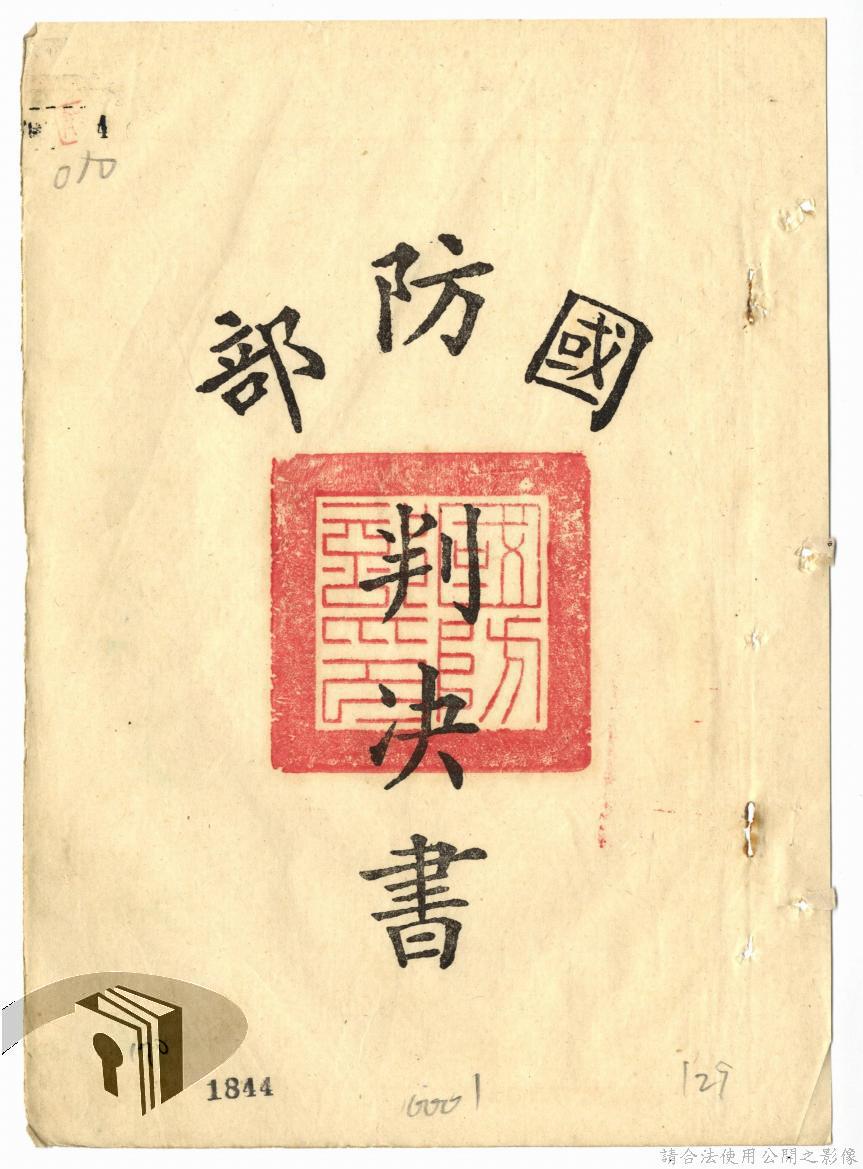 4
010
國防部
判決書
1844
0001
129
請合法使用公開之影像